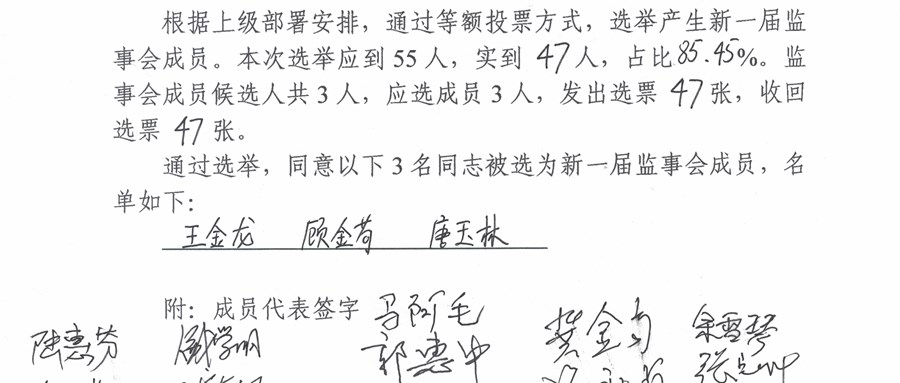 根据上级部署安排，通过等额投票方式，选举产生新一届监
事会成员。本次选举应到 55 人，实到 47 人，占比85.45%。监
事会成员候选人共 3 人，应选成员 3 人，发出选票 47 张，收回
选票 47 张。
通过选举，同意以下 3 名同志被选为新一届监事会成员，名
单如下：
王金龙 顾金苟 唐玉林
附：成员代表签字 马阿毛
陆惠芬 郭惠中 余雪琴